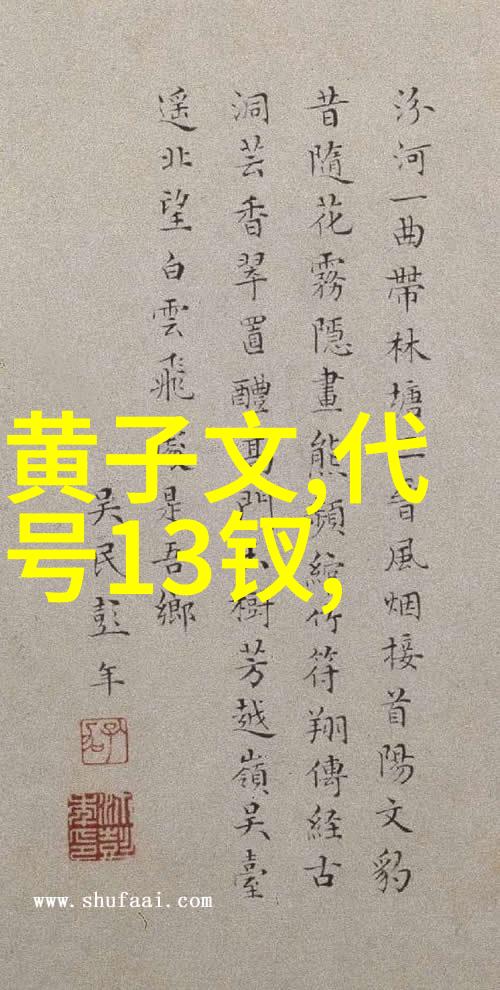 汾河一曲帶林塘三晉風烟接首陽文豹
昔隨花霧隱畫熊頻綰竹符翔傳経古
洞芸香翠置醴高門玉樹芳越嶺吳臺
遥北望白雲飛處是吾鄉
吳民彭年
黄子文,代
号13钗,
www.shufaai.com